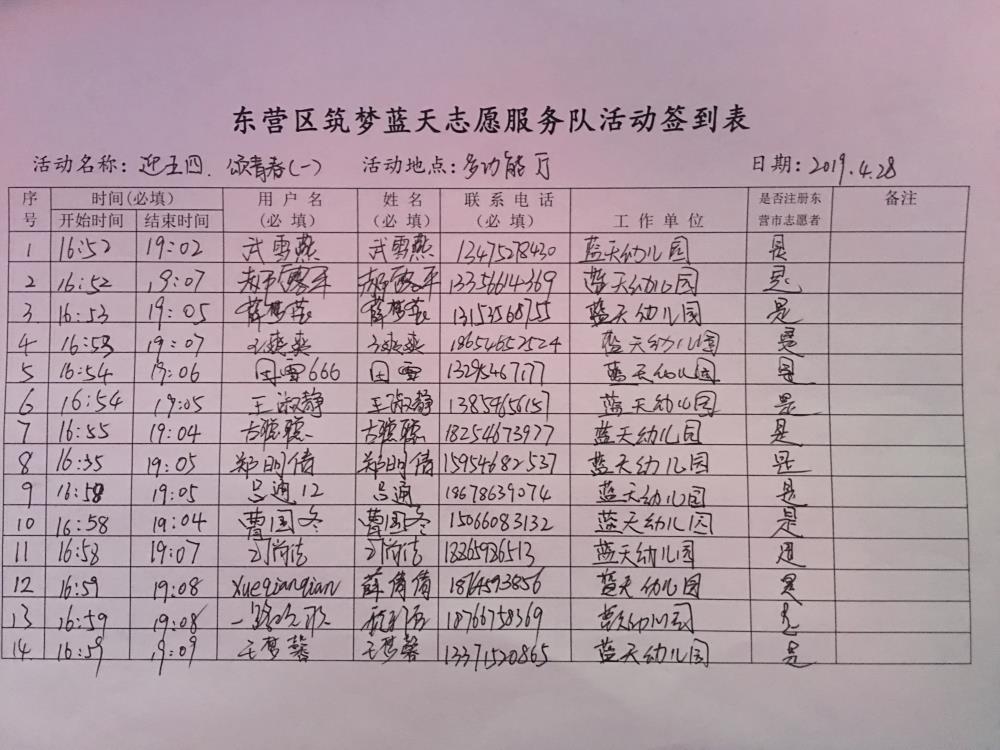 东营区筑梦蓝天志愿服务队活动签到表
活动名称：迎五四、颂青春(一) 活动地点：多功能厅 日期：2019.4.28
序号 时间(必填) 开始时间 结束时间 用户名(必填) 姓名(必填) 联系电话(必填) 工作单位 是否注册东营市志愿者 备注
1 16:52 19:02 武雪燕 武雪燕 13475278430 蓝天幼儿园 是
2 16:52 19:07 郝露平 郝露平 13356614369 蓝天幼儿园 是
3 16:53 19:05 薛梦莲 薛梦莲 13153568755 蓝天幼儿园 是
4 16:53 19:07 18654652524 蓝天幼儿园 是
5 16:54 19:06 田雪666 田雪 蓝天幼儿园 是
6 16:54 19:05 王淑静 王淑静 蓝天幼儿园 是
7 16:55 19:04 古聪聪 古聪聪 18254673977 蓝天幼儿园 是
8 16:35 19:05 郑明倩 郑明倩 15954682537 蓝天幼儿园 是
9 16:58 19:05 吕通12 吕通 18678639074 蓝天幼儿园 是
10 16:58 19:04 曹国冬 曹国冬 15066083132 蓝天幼儿园 是
11 16:58 19:07 刘尚洁 刘尚洁 18265926513 蓝天幼儿园 是
12 16:59 19:08 xueqianqian 薛倩倩 18764593856 蓝天幼儿园 是
13 16:59 19:08 18766758369 蓝天幼儿园 是
14 16:59 19:09 王梦馨 王梦馨 13371520865 蓝天幼儿园 是